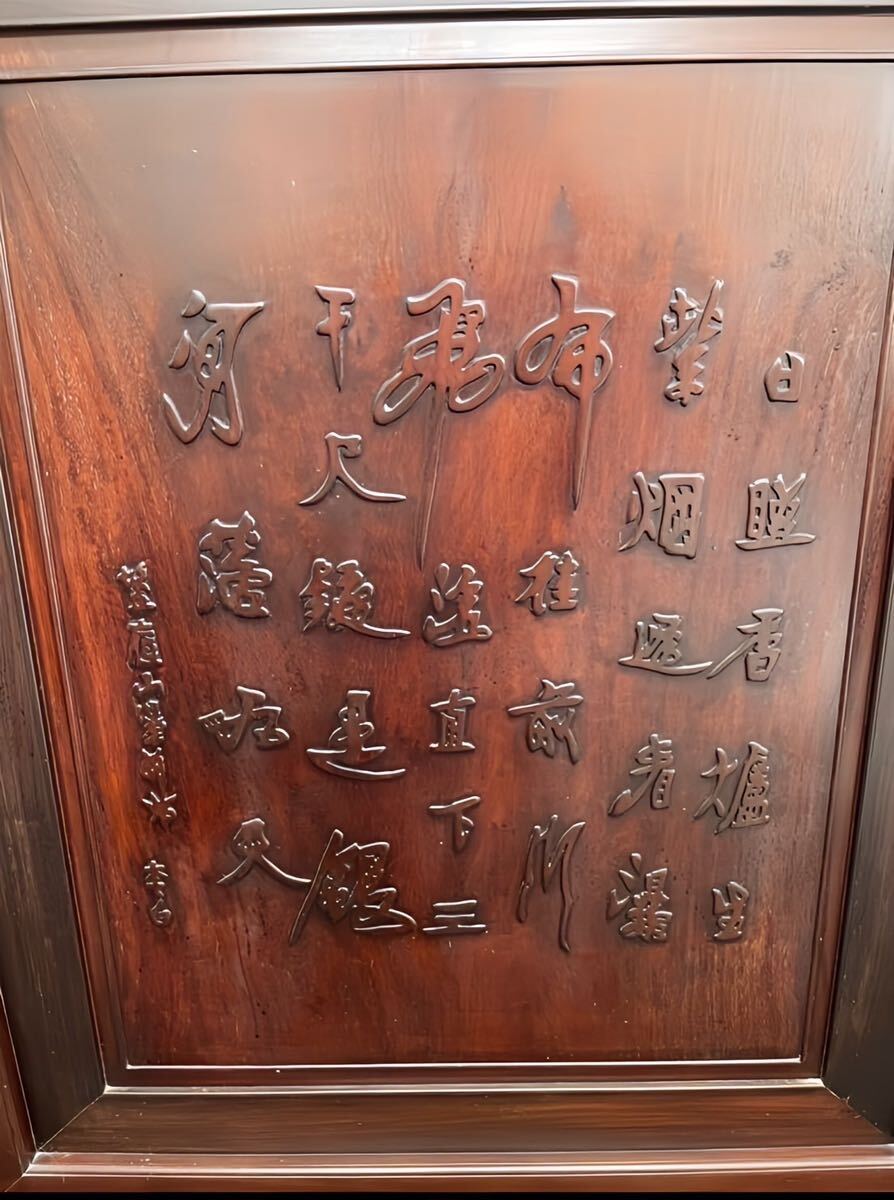 日照香爐生
紫烟遥看瀑
布挂前川
飛流直下三
千尺疑是銀
河落九天
望廬山瀑布水 李白